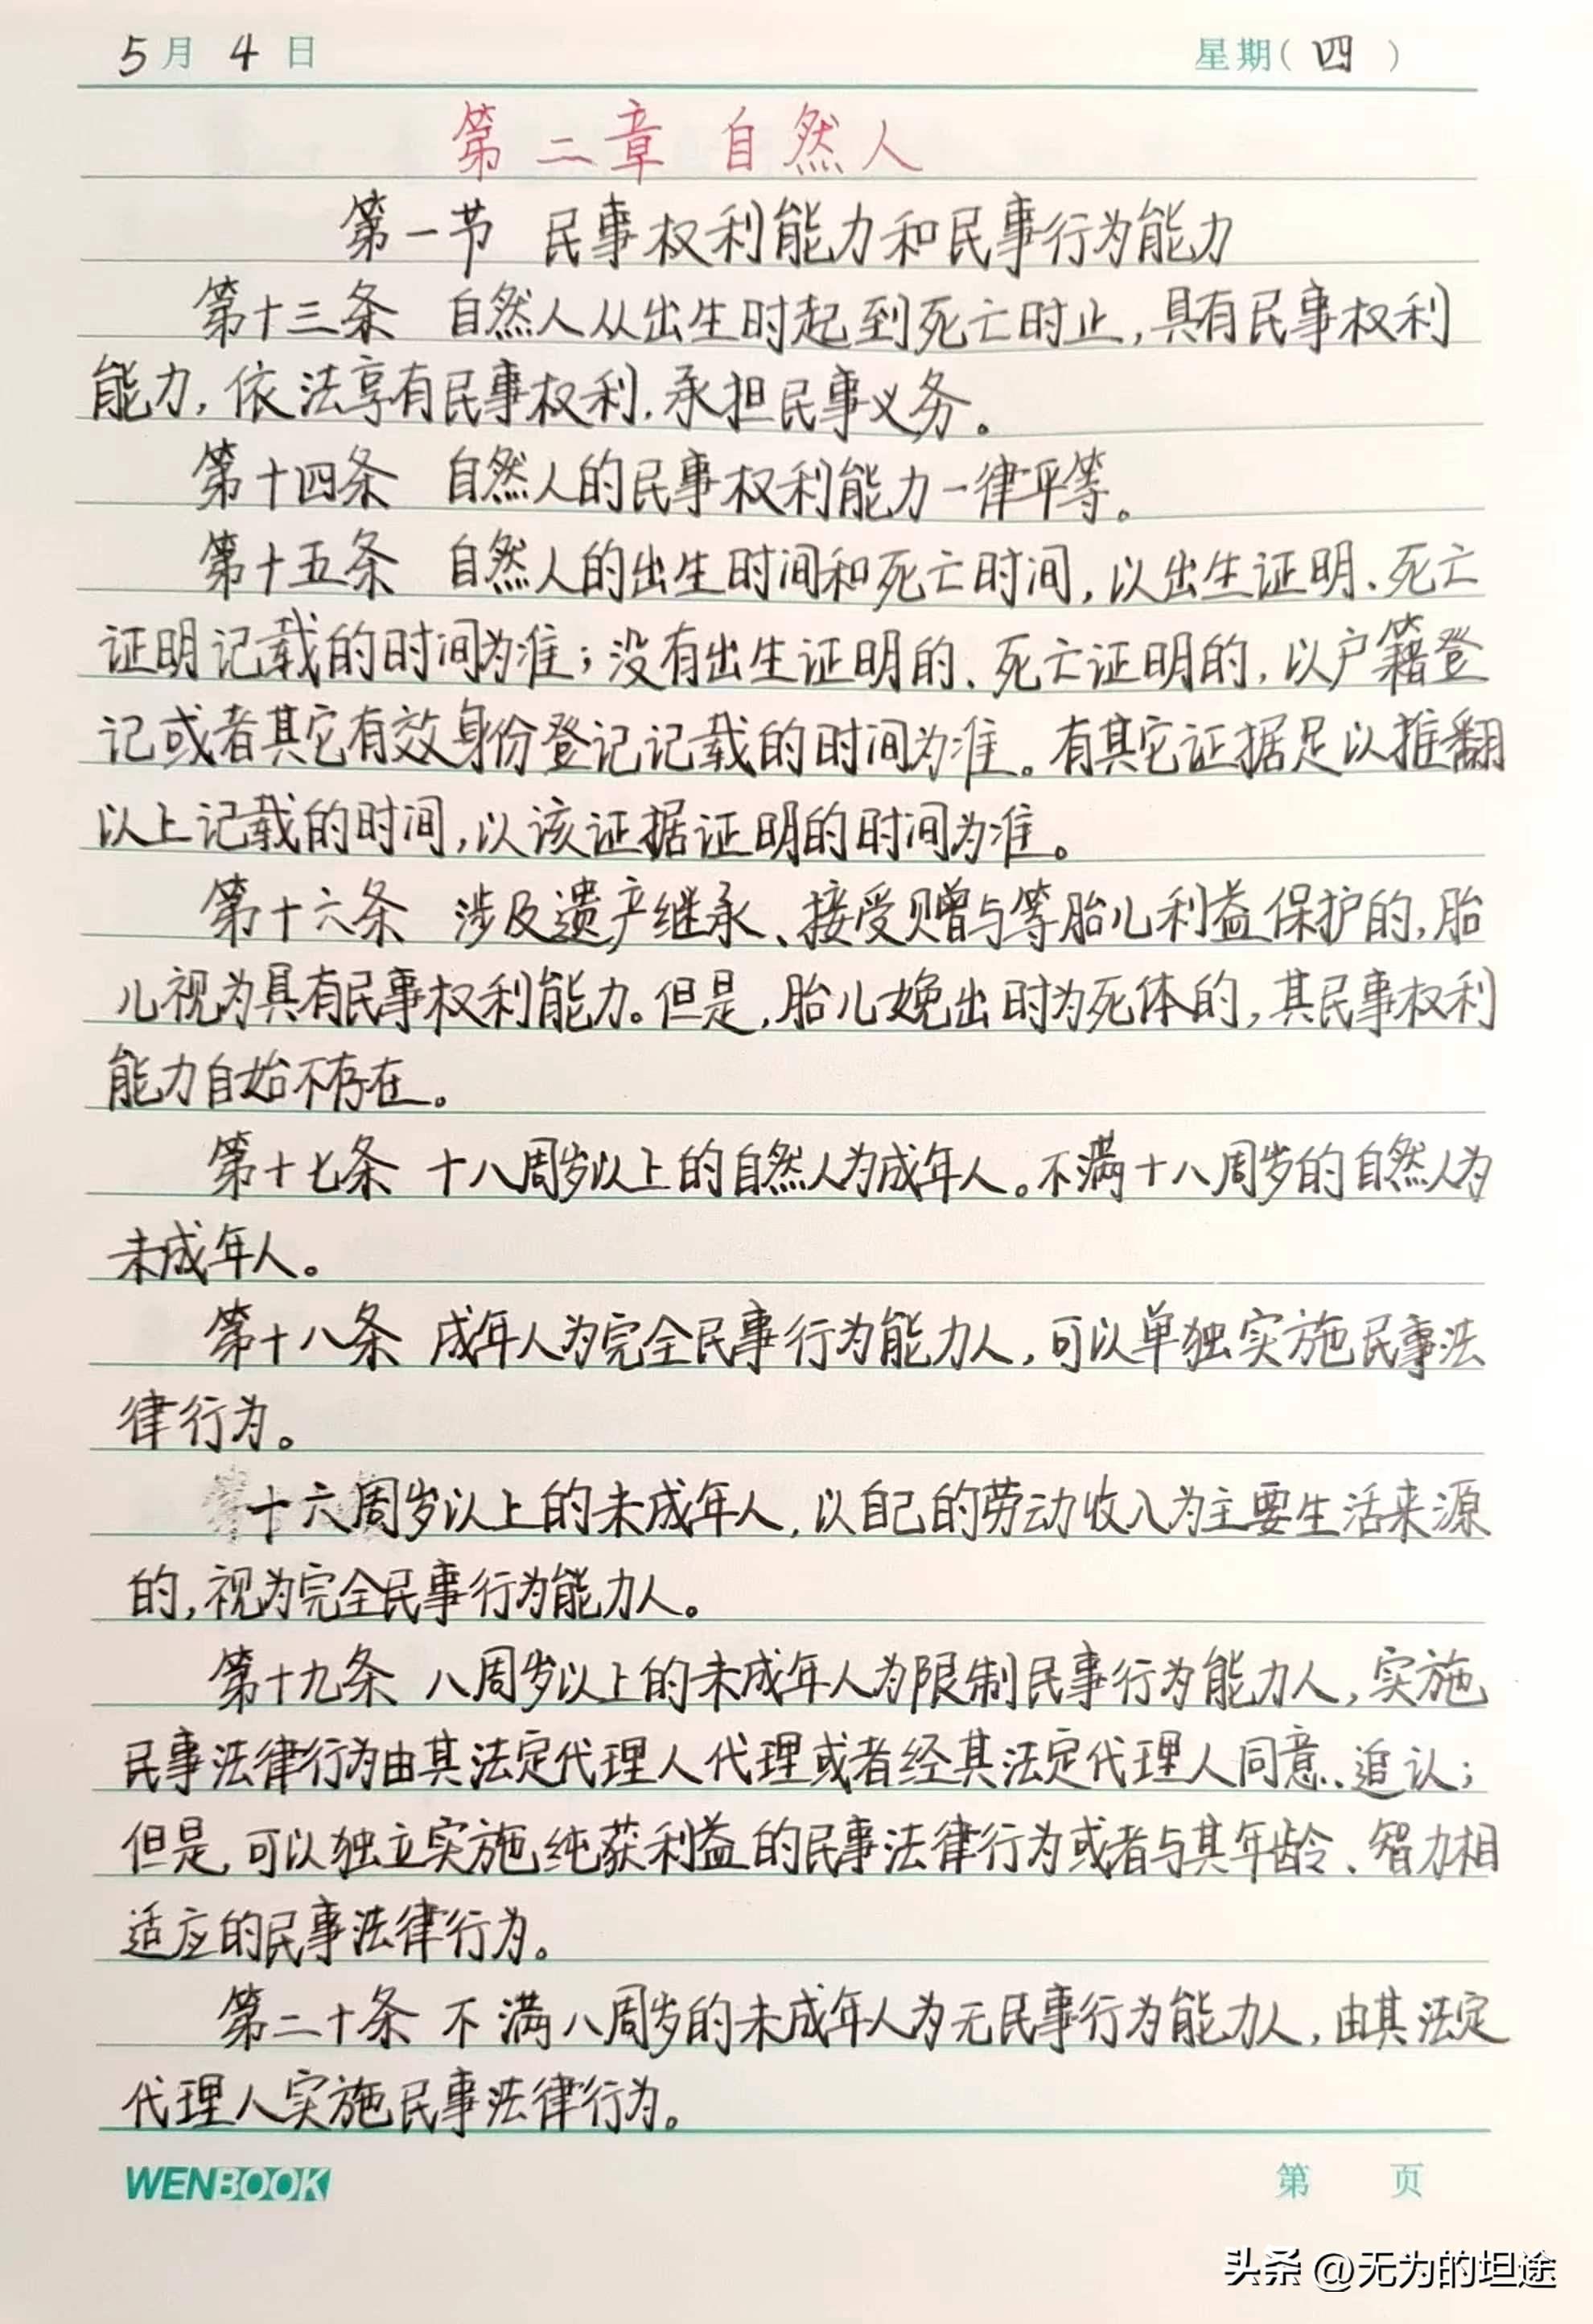 5月4日 星期(四)
第二章 自然人
第一节 民事权利能力和民事行为能力
第十三条 自然人从出生时起到死亡时止,具有民事权利
能力,依法享有民事权利,承担民事义务。
第十四条 自然人的民事权利能力一律平等。
第十五条 自然人的出生时间和死亡时间,以出生证明、死亡
证明记载的时间为准;没有出生证明的、死亡证明的,以户籍登
记或者其它有效身份登记记载的时间为准。有其它证据足以推翻
以上记载的时间,以该证据证明的时间为准。
第十六条 涉及遗产继承、接受赠与等胎儿利益保护的,胎
儿视为具有民事权利能力。但是,胎儿娩出时为死体的,其民事权利
能力自始不存在。
第十七条 十八周岁以上的自然人为成年人。不满十八周岁的自然人为
未成年人。
第十八条 成年人为完全民事行为能力人,可以单独实施民事法
律行为。
十六周岁以上的未成年人,以自己的劳动收入为主要生活来源
的,视为完全民事行为能力人。
第十九条 八周岁以上的未成年人为限制民事行为能力人,实施
民事法律行为由其法定代理人代理或者经其法定代理人同意、追认;
但是,可以独立实施纯获利益的民事法律行为或者与其年龄、智力相
适应的民事法律行为。
第二十条 不满八周岁的未成年人为无民事行为能力人,由其法定
代理人实施民事法律行为。
WENBOOK 第 页
头条 @无为的坦途